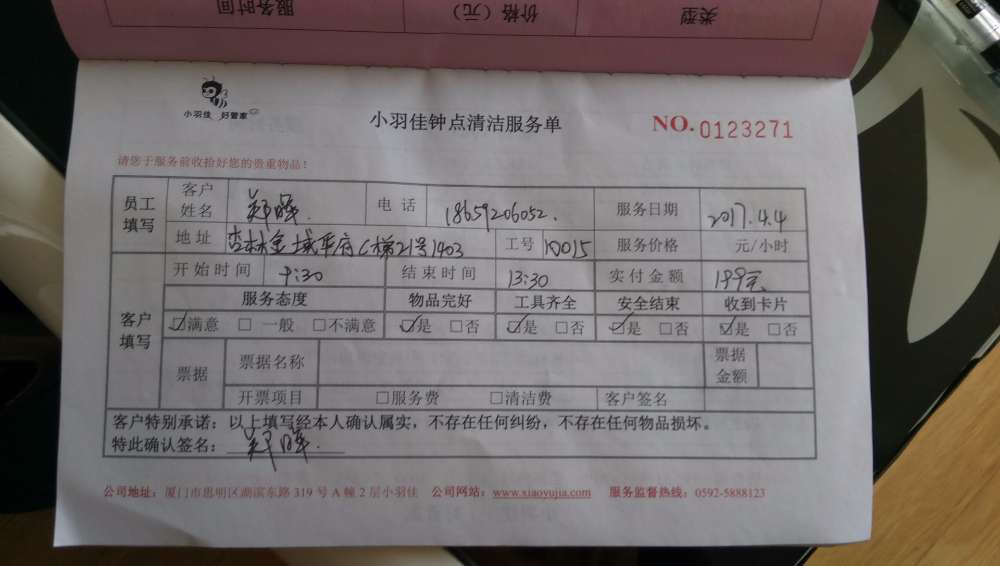 类型 价格（元） 服务时间
小羽佳 好管家
小羽佳钟点清洁服务单
NO. 0123271
请您于服务前收拾好您的贵重物品！
员工填写 客户姓名 郑晔 电话 18659206052. 服务日期 2017.4.4
地址 杏林金域华府C梯21号1403 工号 10015 服务价格 元/小时
客户填写 开始时间 9:30 结束时间 13:30 实付金额 199元
服务态度 物品完好 工具齐全 安全结束 收到卡片
☑满意 □一般 □不满意 ☑是 □否 ☑是 □否 ☑是 □否 ☑是 □否
票据 票据名称 票据金额
开票项目 □服务费 □清洁费 客户签名
客户特别承诺：以上填写经本人确认属实，不存在任何纠纷，不存在任何物品损坏。
特此确认签名： 郑晔
公司地址：厦门市思明区湖滨东路 319 号 A 幢 2 层小羽佳 公司网站：www.xiaoyujia.com 服务监督热线：0592-5888123